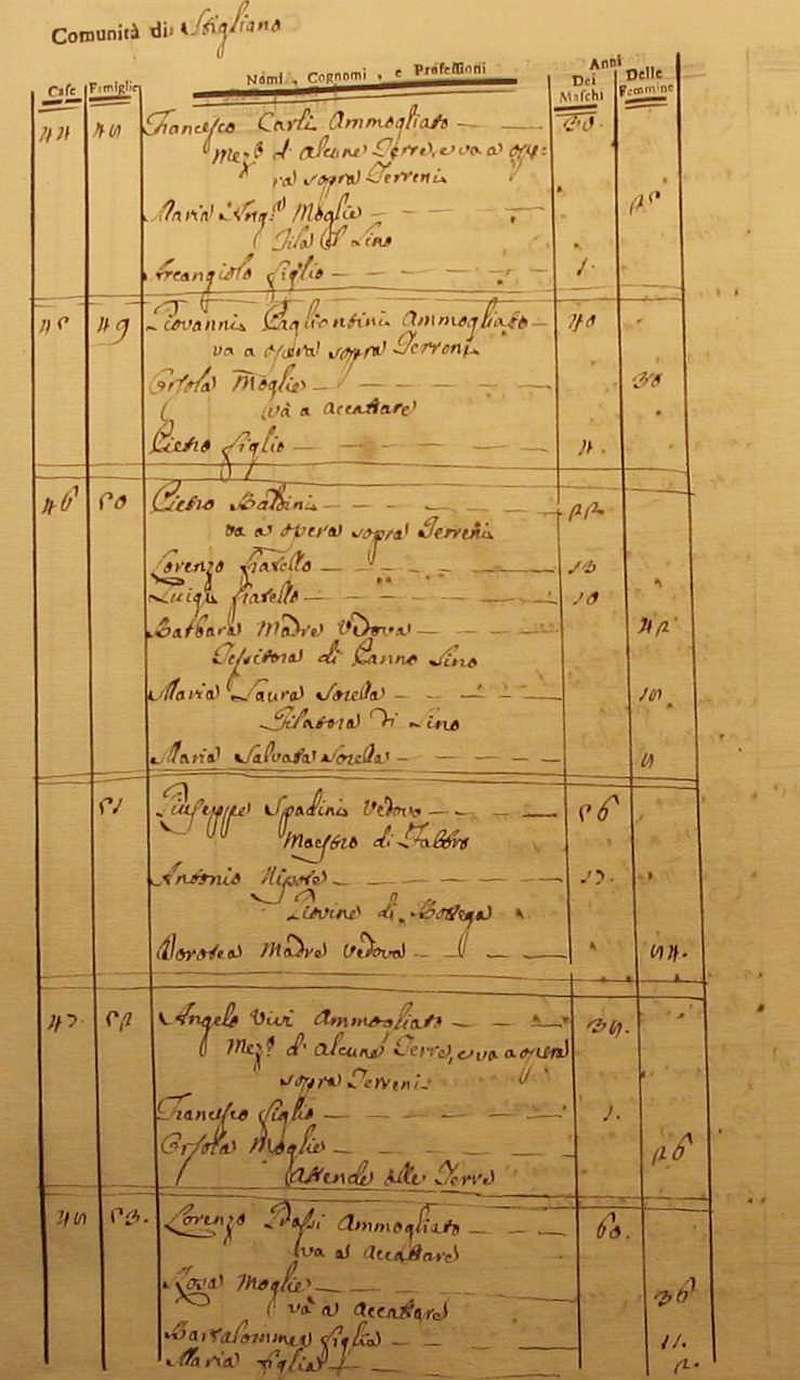 Comunità di Stigliano
Case Famiglie Nomi, Cognomi, e Professioni Anni Dei Maschi Delle Femmine
44 48 Francesco Carli Ammogliato 30.
Mez.º d'alcune Terre, e va a ope:
ra sopra Terreni
Maria Ang.ª Moglie 25
Fila il Lino
Arcangiolo figlio 1.
45 49 Giovanni Paglientini Ammogliato 40
va a opera sopra Terreni
Orsola Moglie 30
va a accattare
Pietro figlio 4.
46 50 Pietro Baldini 22.
va a opera sopra Terreni
Lorenzo fratello 13
Luigi fratello 10
Barbara Madre Vedova 42
Tessitora di Panno Lino
Maria Laura Sorella 18.
Filatora di Lino
Maria Salvata Sorella 8
51 Giuseppe Spadini Vedovo 56
Maestro di Fabbro
Antonio Nipote 17.
Giovine di Bottega
Dorotea Madre Vedova 84.
47 52 Angelo Vivi Ammogliato 38.
Mez.º d'alcune Terre, e va a opera
sopra Terreni
Francesco figlio 1.
Orsola Moglie 26
Attende alle Terre
48 53. Lorenzo Ammogliato 60.
va a accattare
Rosa Moglie 36
va a accattare
Bartolommea figlia 11.
Maria figlia 2.